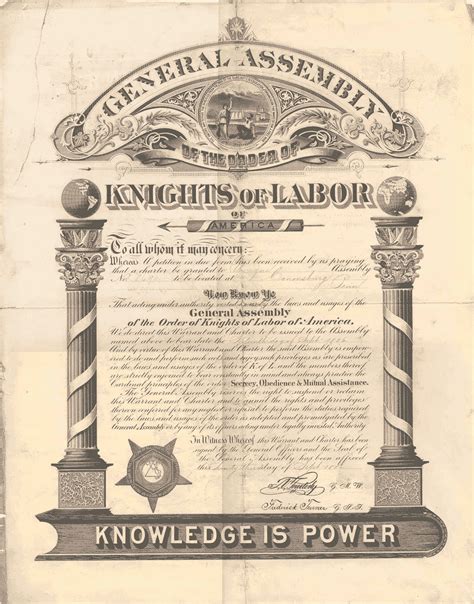 GENERAL ASSEMBLY
OF THE ORDER OF
KNIGHTS OF LABOR
OF
AMERICA
To all whom it may concern:
Whereas A petition in due form has been received by us praying
that a charter be granted to Assembly
No. to be located at
Now Know Ye
That acting under authority vested by the laws and usages of the
General Assembly
of the Order of Knights of Labor of America.
We do grant this Warrant and Charter to be issued to the Assembly
named above to bear date the of Sept 188
And by virtue of this Warrant and Charter the said Assembly is empow
ered to do and perform such acts and enjoy such privileges as are prescribed
in the laws and usages of the order of K of L and the members thereof
are strictly enjoined to bear constantly in mind and always practice the
Cardinal principles of the order Secrecy, Obedience & Mutual Assistance.
The General Assembly reserves the right to suspend or reclaim
this Warrant and Charter and to annul the rights and privileges
therein conferred for any neglect or refusal to perform the duties required
by the laws and usages of the order as adopted and promulgated by the
General Assembly or by any of its officers acting under legally invested Authority
In Witness Whereof this Warrant and Charter has been
signed by the General Officers and the Seal of
the General Assembly has been affixed
this day of Sept 188
G. M. W.
Frederick Turner G. S. T.
KNOWLEDGE IS POWER